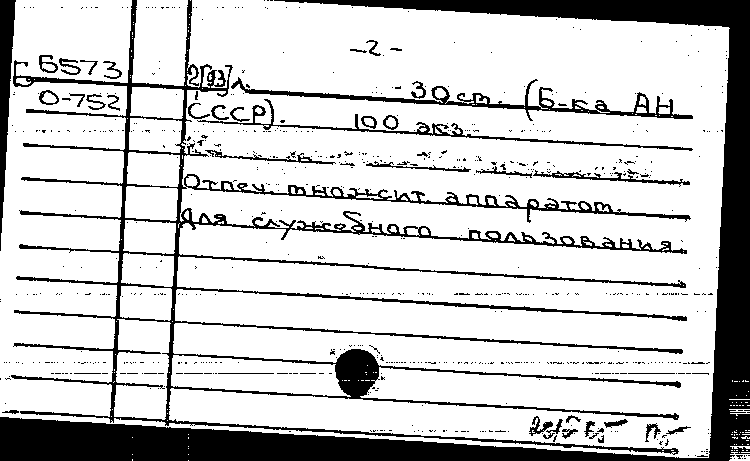 -2-
Б5573
О-752
2[93]л. - 30 см. (Б-ка АН
СССР). 100 экз.
Отпеч. множит. аппаратом.
Для служебного пользования.